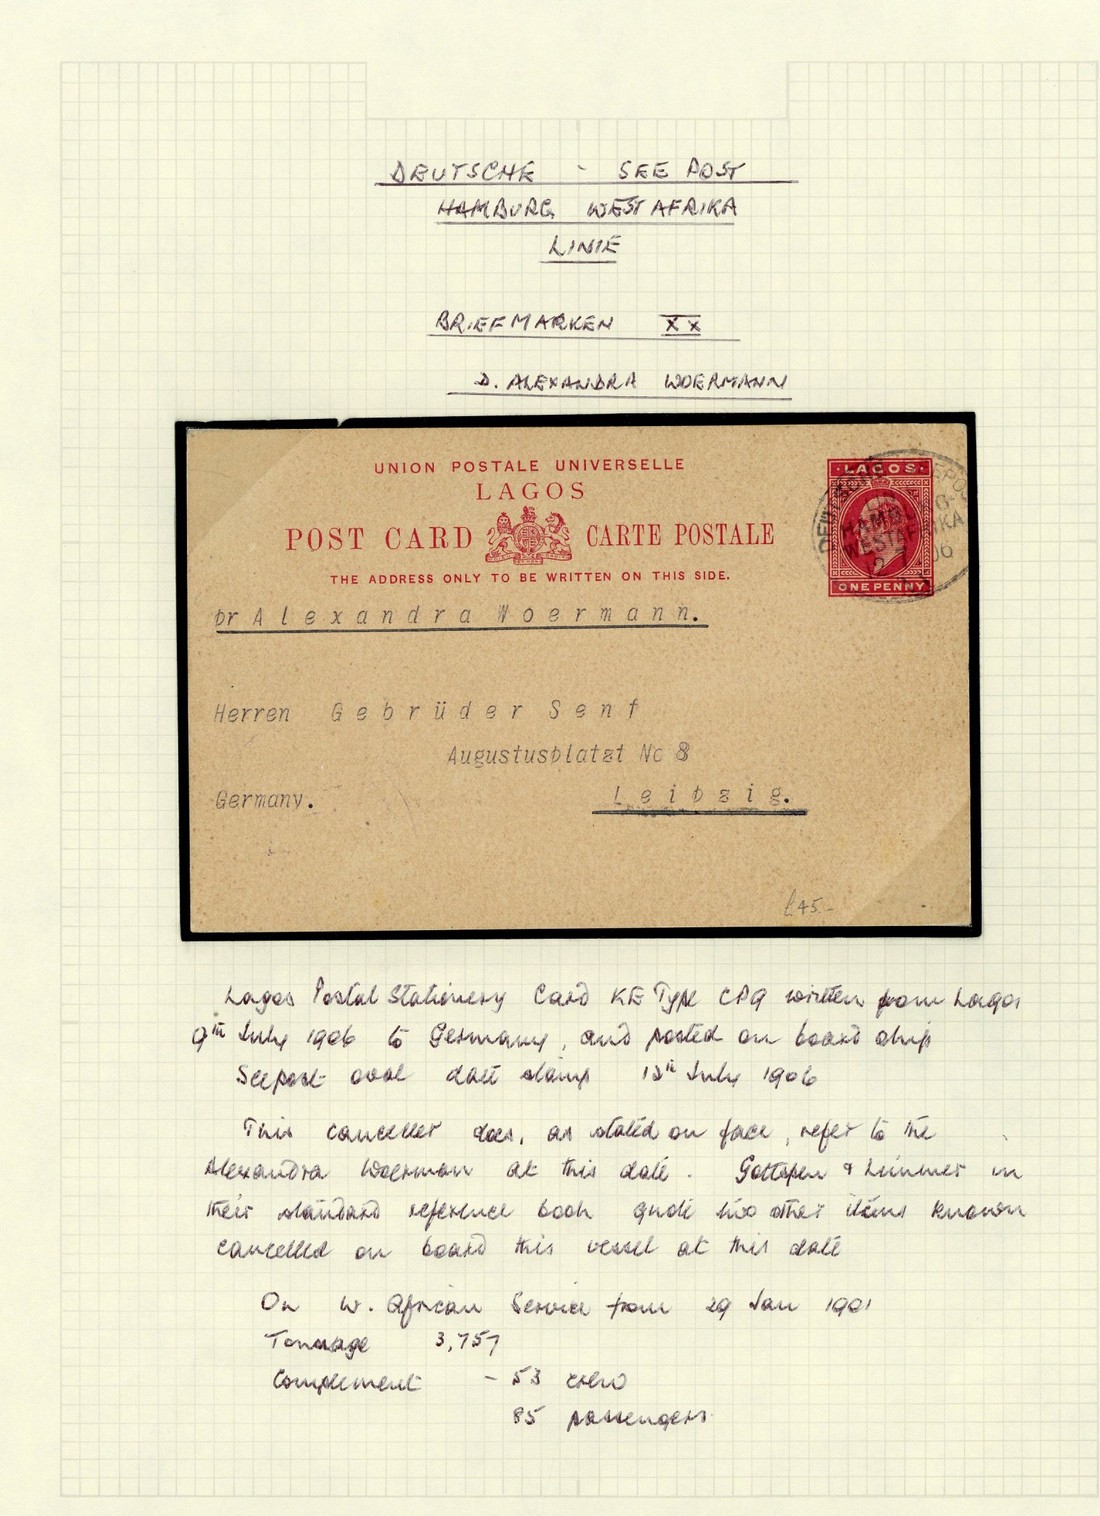 DEUTSCHE - SEE POST
HAMBURG WESTAFRIKA
LINIE
BRIEFMARKEN XX
D. ALEXANDRA WOERMANN
UNION POSTALE UNIVERSELLE
LAGOS
POST CARD CARTE POSTALE
THE ADDRESS ONLY TO BE WRITTEN ON THIS SIDE.
LAGOS
ONE PENNY
HAMB G-
WESTAFRIKA
06
pr Alexandra Woermann.
Herren Gebrüder Senf
Augustusplatzt No 8
Germany. Leipzig.
£45-
Lagos Postal Stationery Card KE Type CP9 written from Lagos
9th July 1906 to Germany, and posted on board ship
Seepost oval date stamp 12th July 1906
This canceller does, as stated on face, refer to the
Alexandra Woerman at this date. & in
their standard reference book two other items known
cancelled on board this vessel at this date
On W. African Service from 29 Jan 1901
Tonnage 3,757
Complement - 53 crew
85 passengers